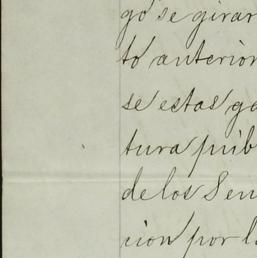 go se girar
to anterior
se estas ga
tura públ
de los Sen
cion por l